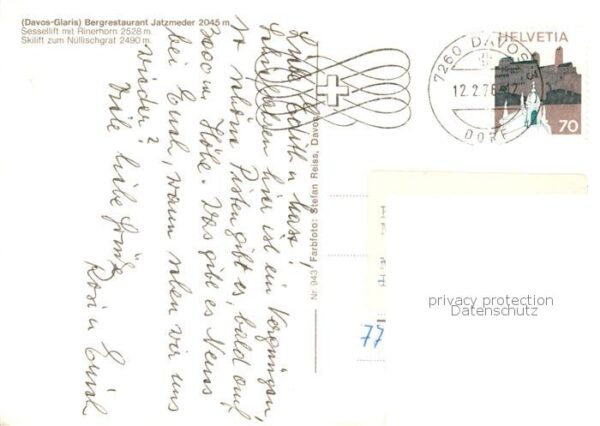 (Davos-Glaris) Bergrestaurant Jatzmeder 2045 m
Sessellift mit Rinerhorn 2528 m
Skilift zum Nüllischgrat 2490 m.
Liebe Edith u
hier ist ein Vergnügen,
so schöne Pisten gibt es, bald auf
3000 m Höhe. Was gibt es Neues
bei Euch, wann sehen wir uns
wieder?
Viele liebe Grüße
Rosi u Erich
Nr 943 Farbfoto: Stefan Reiss, Davos
7260 DAVOS 3
12.2.76
DORF
HELVETIA
70
77
privacy protection
Datenschutz